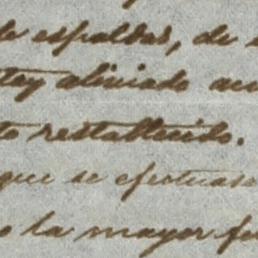 de espaldas, de
estoy aliviado
restablecido.
que se efectuase
la mayor